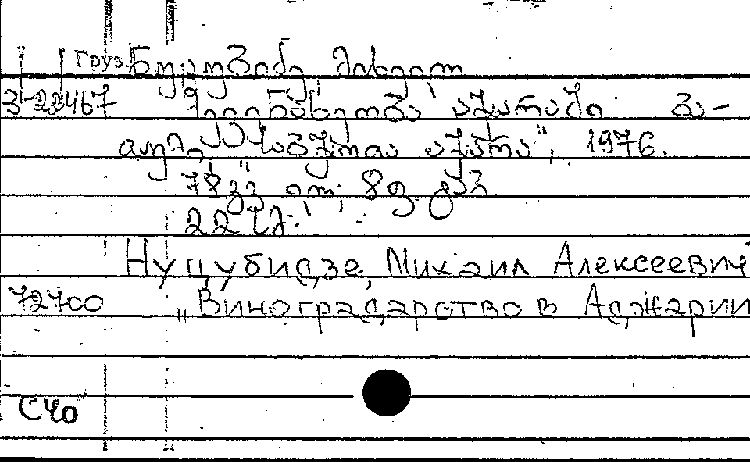 Груз. ნუცუბიძე მიხეილ
3-23467 მევენახეობა აჭარაში. ბა-
თუმი, "საბჭოთა აჭარა", 1976.
78 გვ.
22 სმ.
Нуцубидзе, Михаил Алексеевич
72700 „Виноградарство в Аджарии
СЧО